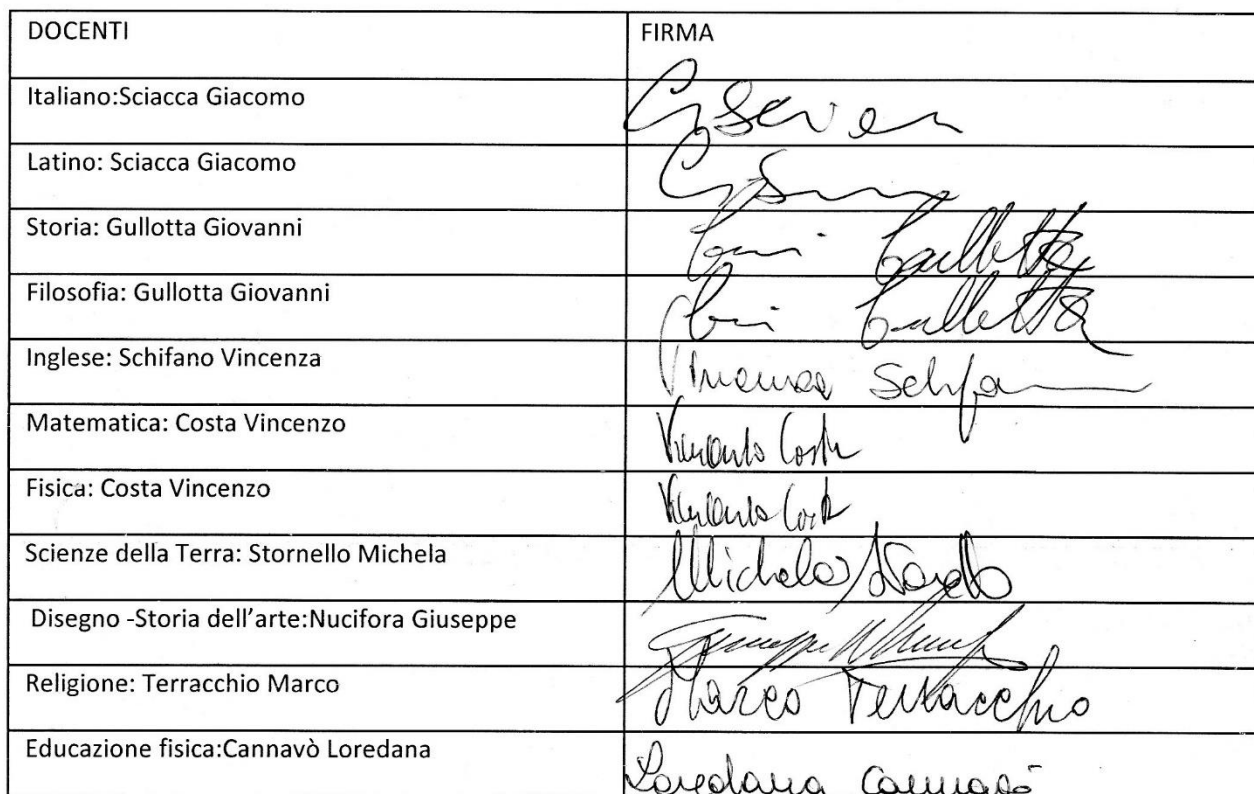 DOCENTI FIRMA
Italiano:Sciacca Giacomo
Latino: Sciacca Giacomo
Storia: Gullotta Giovanni
Filosofia: Gullotta Giovanni
Inglese: Schifano Vincenza
Matematica: Costa Vincenzo Vincenzo Costa
Fisica: Costa Vincenzo Vincenzo Costa
Scienze della Terra: Stornello Michela Michela Stornello
Disegno -Storia dell’arte:Nucifora Giuseppe Giuseppe
Religione: Terracchio Marco Marco Terracchio
Educazione fisica:Cannavò Loredana Loredana Cannavò